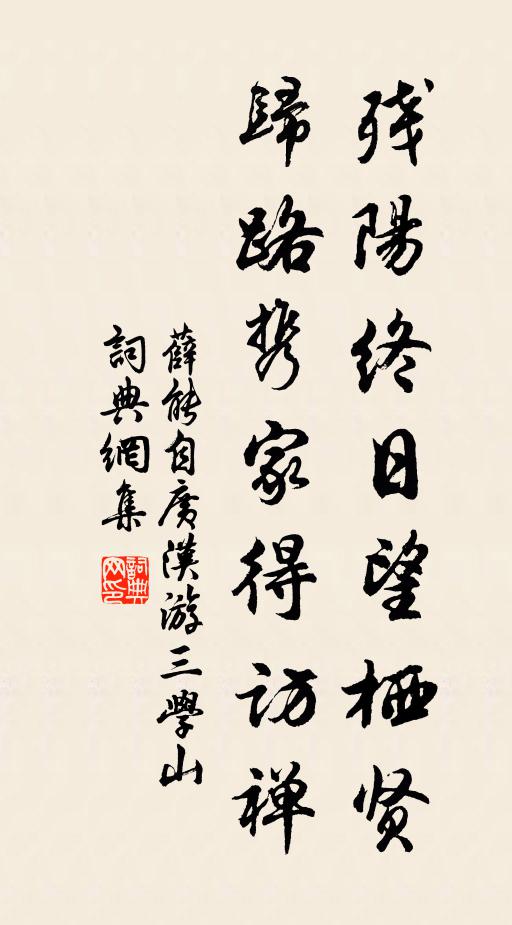 残陽終日望栖贤
歸路携家得访禅
薛能自廣漢游三學山
詞典網集
詞典网印